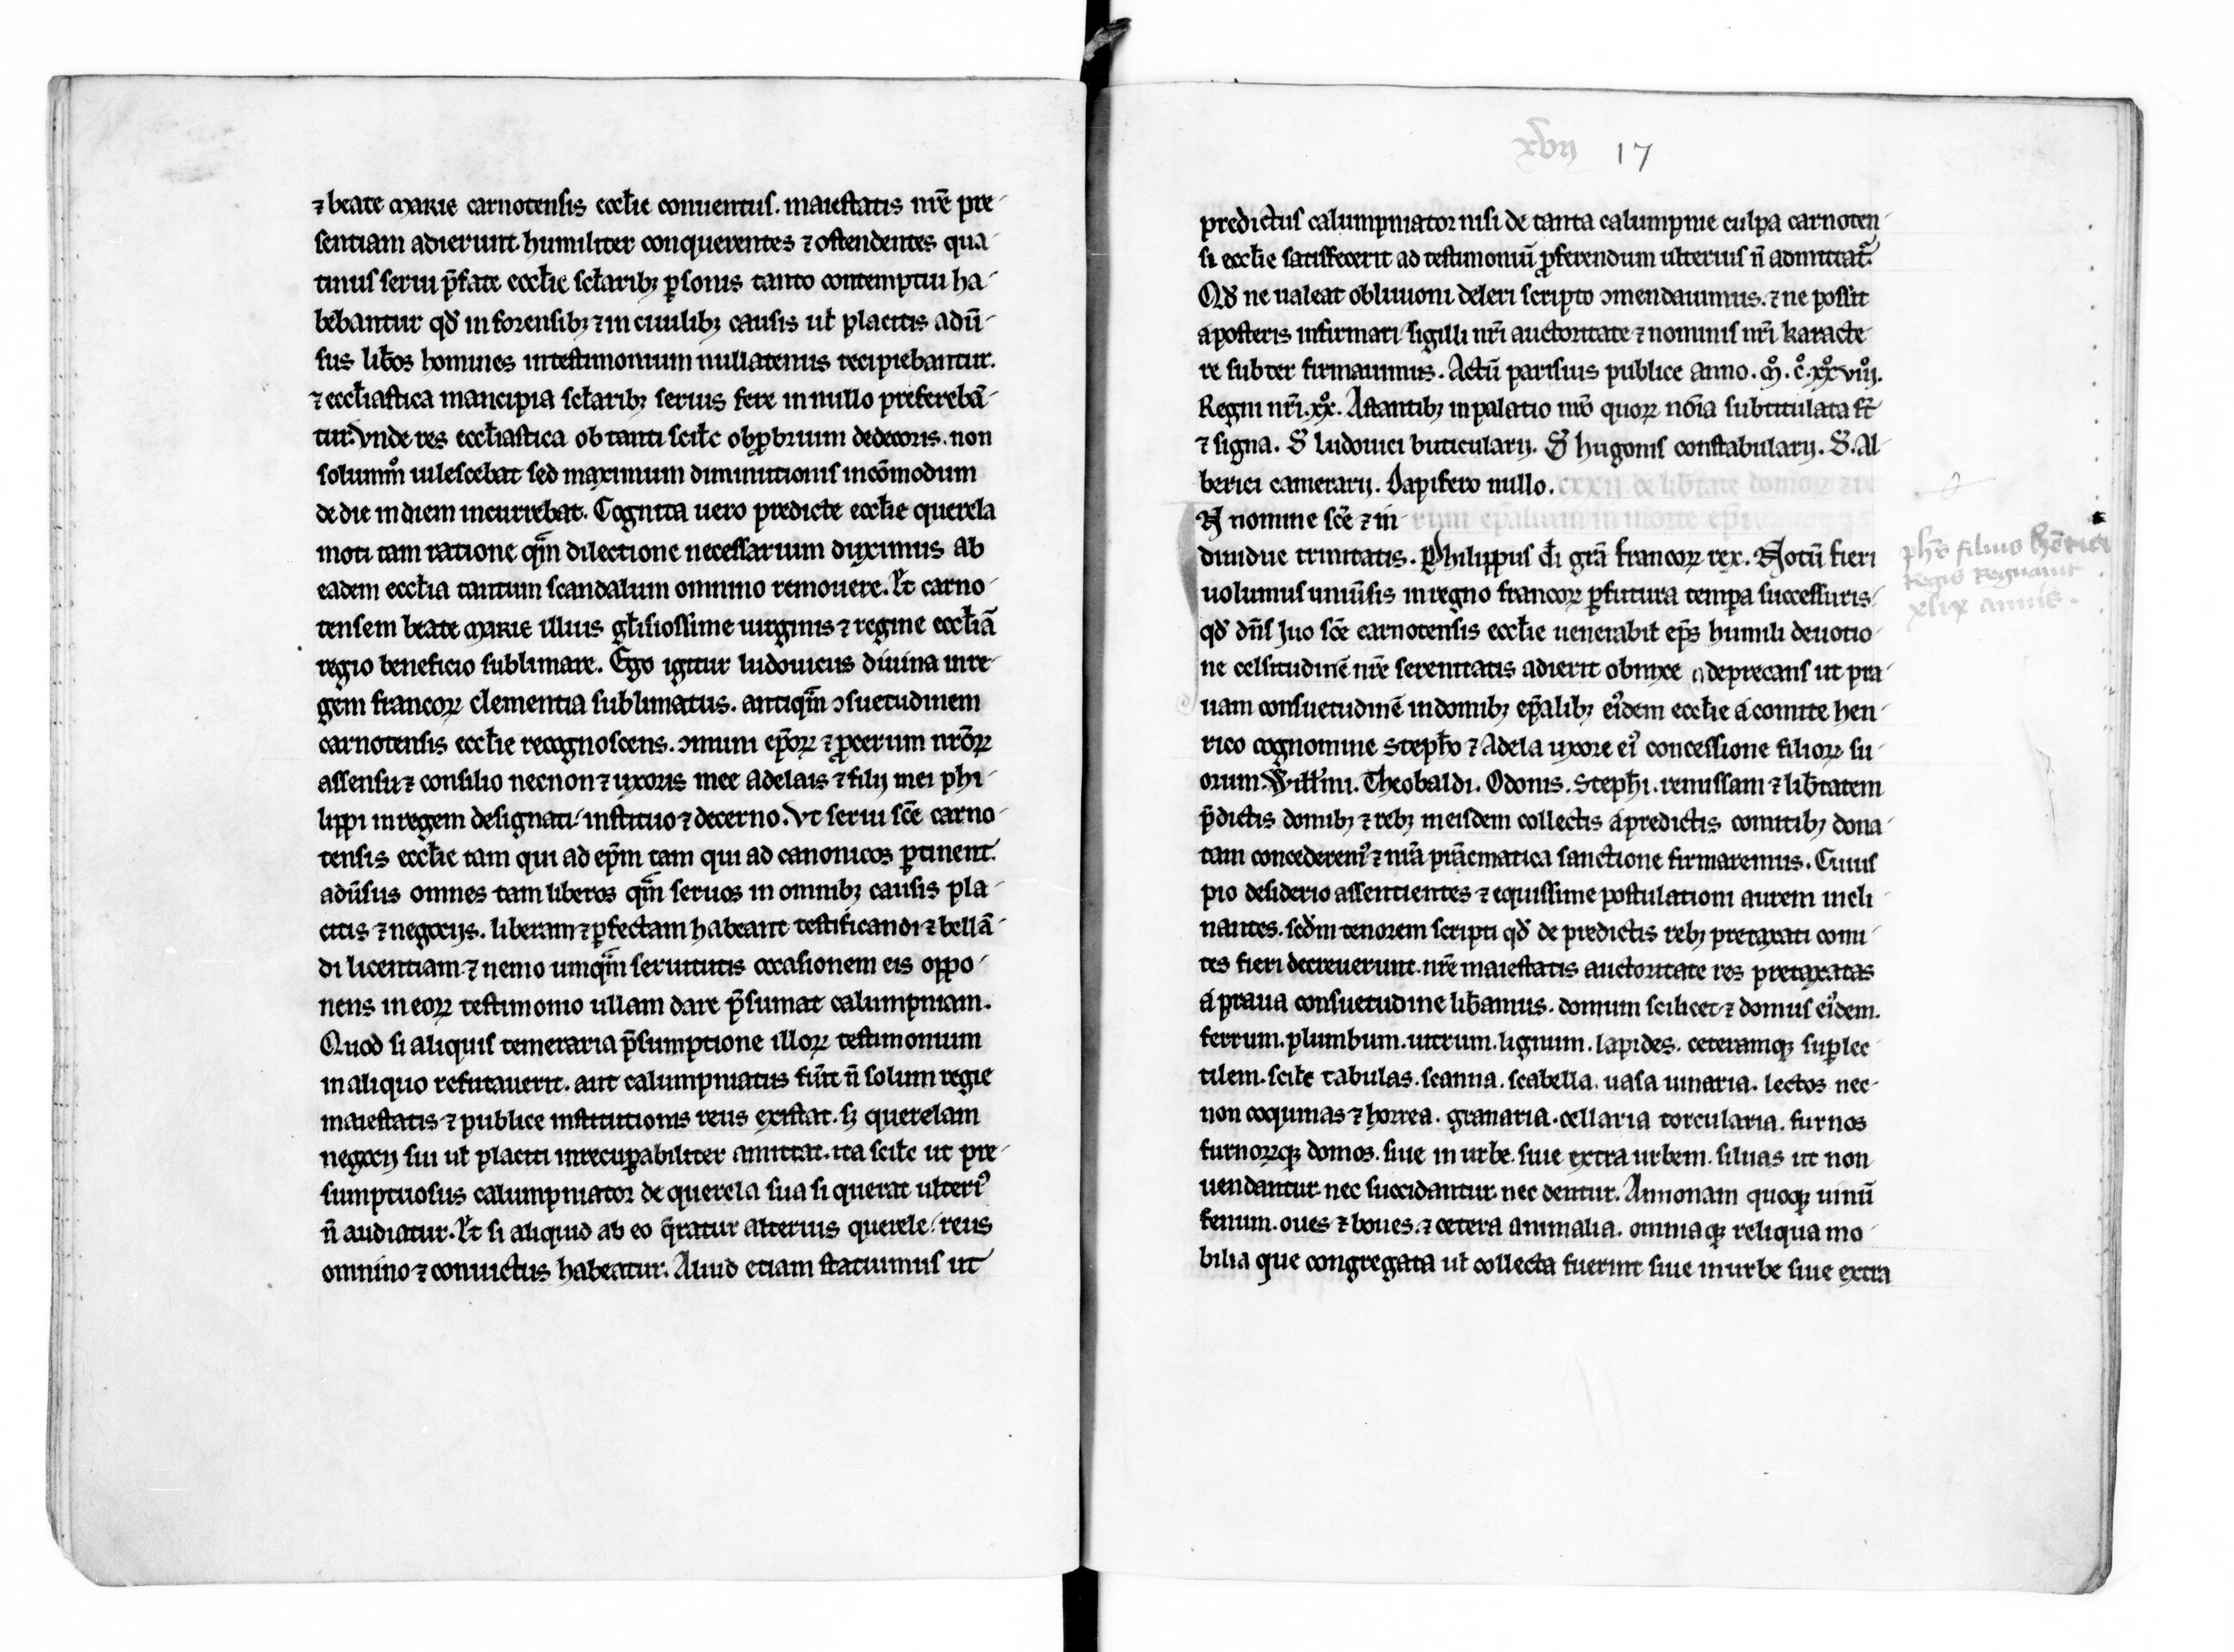 ⁊ beate marie carnotensis eccl̄ie conuentus. maiestatis nr̄e pre-
sentiam adierunt humiliter conquerentes ⁊ ostendentes qua-
tinus serui p̄fate eccl̄ie scl̄arib; ꝑsonis tanto contemptui ha-
bebantur qd̄ in forensib; ⁊ in ciuilib; causis ul̄ placitis adu̅-
sus lib̄os homines in testimonium nullatenus recipiebantur.
⁊ eccl̄iastica mancipia scl̄arib; seruis fere in nullo preferebā-
tur. Vnde res eccl̄iastica ob tanti scil̄c obꝓbrium dedecoris. non
solummͦ uilescebat sed maximum diminutionis incōmodum
de die in diem incurrebat. Cognita uero predicte eccl̄ie querela
moti tam ratione qm̄ dilectione necessarium duximus ab
eadem eccl̄ia tantum scandalum omnino remouere. Et carno-
tensem beate marie illius gl̄isiossime uirginis ⁊ regine eccl̄iā
regio beneficio sublimare. Ego igitur ludouicus diuina in re-
gem francoꝝ clementia sublimatus. antiqm̄ ɔsuetudinem
carnotensis eccl̄ie recognoscens. ɔmuni ep̄oꝝ ⁊ ꝓcerum nr̄oꝝ
assensu ⁊ consilio necnon ⁊ uxoris mee adelais ⁊ filij mei phi-
lippi in regem designati instituo ⁊ decerno. Vt serui sc̄e carno-
tensis eccl̄ie tam qui ad ep̄m tam qui ad canonicos ꝑtinent.
adu̅sus omnes tam liberos qm̄ seruos in omnib; causis pla-
citis ⁊ negocijs. liberam ⁊ ꝑfectam habeant testificandi ⁊ bellā-
di licentiam ⁊ nemo umqm̄ seruitutis occasionem eis oppo-
nens in eoꝝ testimonio ullam dare p̄sumat calumpniam.
Quod si aliquis temeraria p̄sumptione illoꝝ testimonium
in aliquo refutauerit. aut calumpniatus fu̅it n̄ solum regie
maiestatis ⁊ publice institutionis reus existat. s; querelam
negocij sui ul̄ placiti inrecuꝑabiliter amittat. ita scil̄c ut pre-
sumptuosus calumpniator de querela sua si querat ulteriꝰ
n̄ audiatur. Et si aliquid ab eo q̄ratur alterius querele reus
omnino ⁊ conuictus habeatur. Aliud etiam statuimus ut
xvij 17
predictus calumpniator nisi de tanta calumpnie culpa carnoten-
si eccl̄ie satisfecerit ad testimoniū ꝓferendum ulterius n̄ admittat᷑.
Qd̄ ne ualeat obliuioni deleri scripto ɔmendauimus. ⁊ ne possit
a posteris infirmari sigilli nr̄i auctoritate ⁊ nominis nr̄i karacte-
re subter firmauimus. Actū parisius publice anno. mͦ. cͦ. xxͦ viijͦ.
Regni nr̄i. xxͦ. Astantib; in palatio nr̄o quoꝝ nōia subtitulata st̄
⁊ signa. S̄ ludouici buticularij. S̄ hugonis constabularij. S̄. Al-
berici camerarij. Dapifero nullo. cxxij de lib̄tate domoꝝ ⁊ re
N nomine sc̄e ⁊ in- rum ep̄alium in morte ep̄i
diuidue trinitatis. Philippus d̄i gr̄a francoꝝ rex. Notū fieri
uolumus uniu̅sis in regno francoꝝ ꝑ futura temꝑa successuris.
qd̄ dn̄s Iuo sc̄e carnotensis eccl̄ie uenerabil̄ ep̄s humili deuotio-
ne celsitudinē nr̄e serenitatis adierit obnixe deprecans ut pra-
uam consuetudinē in domib; ep̄alib; eiꝰdem eccl̄ie a comite hen-
rico cognomine steph̄o ⁊ Adela uxore eiꝰ concessione filioꝝ su-
orum. Will̄mi. Theobaldi. Odonis. Steph̄i. remissam ⁊ lib̄tatem
p̄dictis domib; ⁊ reb; in eisdem collectis a predictis comitib; dona-
tam concederemꝰ ⁊ nr̄a prācmatica sanctione firmaremus. Cuius
pio desiderio assentientes ⁊ equissime postulationi aurem incli-
nantes. scd̄m tenorem scripti qd̄ de predictis reb; pretaxati comi-
tes fieri decreuerunt. nr̄e maiestatis auctoritate res pretaxatas
a praua consuetudine lib̄amus. domum scilicet ⁊ domus eiꝰdem.
ferrum. plumbum. uitrum. lignum. lapides. ceteramq; suꝑlec-
tilem. scil̄c tabulas. scanna. scabella. uasa uinaria. lectos nec-
non coquinas ⁊ horrea. granaria. cellaria torcularia. furnos
furnoꝝq; domos. siue in urbe. siue extra urbem. siluas ut non
uendantur nec succidantur nec dentur. Annonam quoq; uinū
fenum. oues ⁊ boues. ⁊ cetera animalia. omniaq; reliqua mo-
bilia que congregata ul̄ collecta fuerint siue in urbe siue extra
ph̄s filius hēnrici
Regis Regnauit
xlix annis.